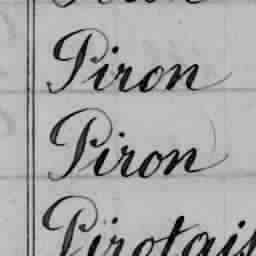 Piron
Piron
Pirotais